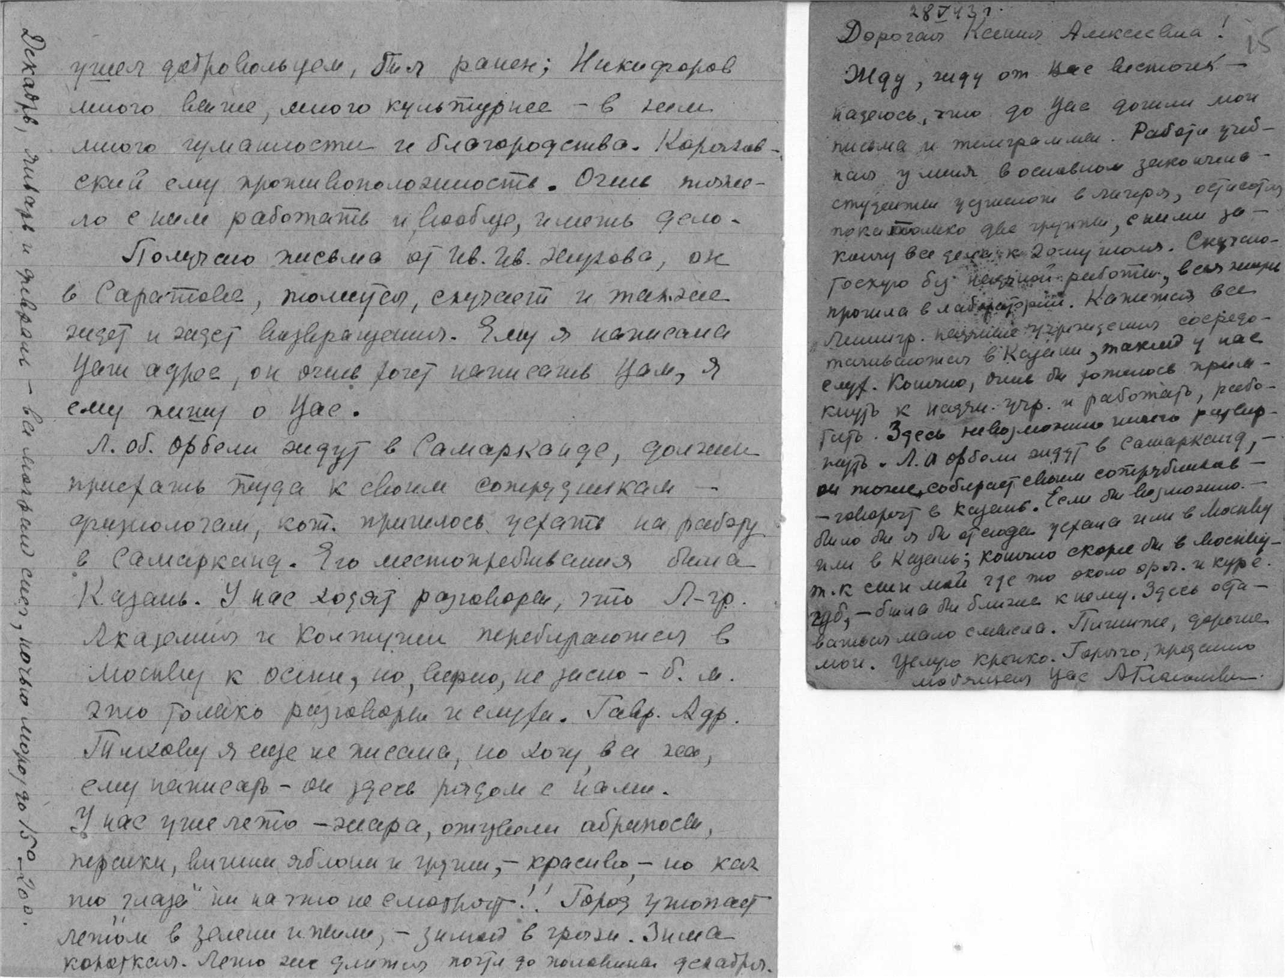 ушел добровольцем, был ранен; Никифоров
много выше, много культурнее – в нем
много гуманности и благородства.
ский ему противоположность. Очень тяже-
ло с ним работать и, вообще, иметь дело.
Получаю письма от Ив. Ив. Жукова, он
в Саратове, томится, скучает и также
ждет и ждет возвращения. Ему я написала
Ваш адрес, он очень хочет написать Вам, я
ему пишу о Вас.
Л. об. Орбели ждут в Самарканде, должен
приехать туда к своим сотрудникам –
физиологам, кот. пришлось уехать на работу
в Самарканд. Его местопребывания была
Казань. У нас ходят разговоры, что Л-гр.
Академия и Колтуши перебираются в
Москву к осени, но, верно, не ясно – б. м.
это только разговоры и слухи. Гавр. Адр.
Тихову я еще не писала, но хочу, все же,
ему написать – он здесь рядом с нами.
У нас уже лето – жара, отцвели абрикосы,
персики, вишни яблони и груши, – красиво, – но как
то "глаза" ни на что не смотрят!! Город утопает
летом в зелени и пыли, – зимой в грязи. Зима
короткая. Лето же длится почти до половины декабря.
Декабрь, январь и февраль – все мокрый снег, ночью мороз до 15°-20°.
28 V 43 г.
15
Дорогая Ксения Алексеевна!
Жду, жду от Вас весточки –
надеюсь, что до Вас дошли мои
письма и телеграммы. Работа учеб-
ная у меня в основном закончена –
студенты уезжают в лагеря, остаются
пока только две группы, с ними за-
кончу все дела к 20му июля. Скучаю-
Тоскую без научной работы, вся жизнь
прошла в лаборатории. Кажется все
Ленингр. научные учреждения сосредо-
тачиваются в Казани, такой у нас
слух. Конечно, очень бы хотелось прим-
кнуть к научн. учр. и работать, рабо-
тать. Здесь невозможно ничего развер-
нуть. Л. А Орбели ждут в Самарканд, –
он тоже собирает своим сотрудников –
– говорят в Казань. Если бы возможно –
было бы я бы отсюда уехала или в Москву
или в Казань; конечно скорее бы в Москву –
т. к сын мой где то около орл. и курс.
– была бы ближе к нему. Здесь оста-
ваться мало смысла. Пишите, дорогие
мои. Целую крепко. Горячо, преданно
любящая Вас